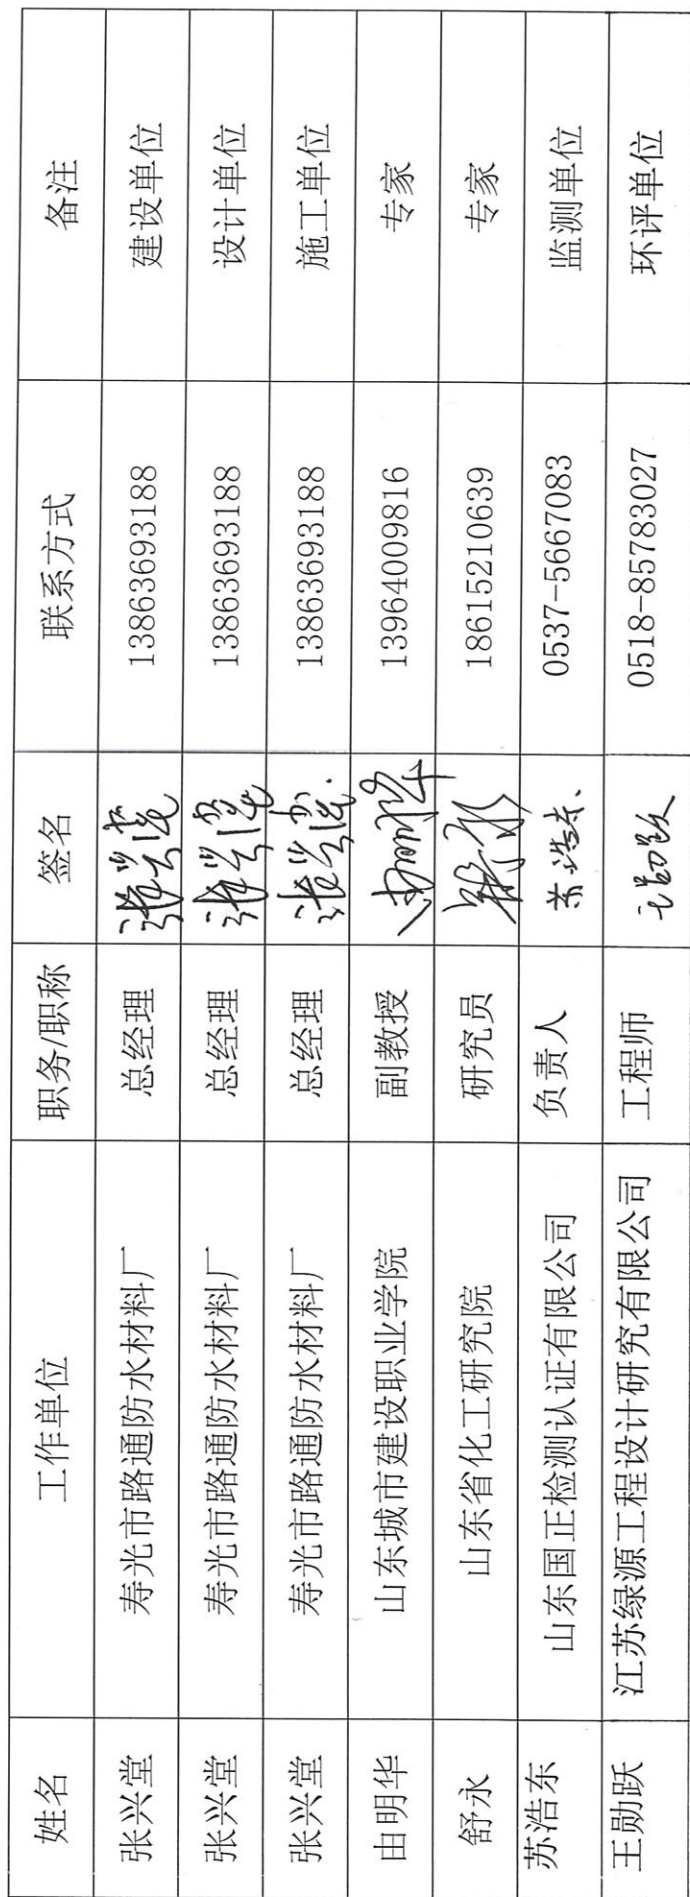 姓名 工作单位 职务/职称 签名 联系方式 备注
张兴堂 寿光市路通防水材料厂 总经理 13863693188 建设单位
张兴堂 寿光市路通防水材料厂 总经理 13863693188 设计单位
张兴堂 寿光市路通防水材料厂 总经理 13863693188 施工单位
由明华 山东城市建设职业学院 副教授 由明华 13964009816 专家
舒永 山东省化工研究院 研究员 18615210639 专家
苏浩东 山东国正检测认证有限公司 负责人 苏浩东 0537-5667083 监测单位
王勋跃 江苏绿源工程设计研究有限公司 工程师 王勋跃 0518-85783027 环评单位